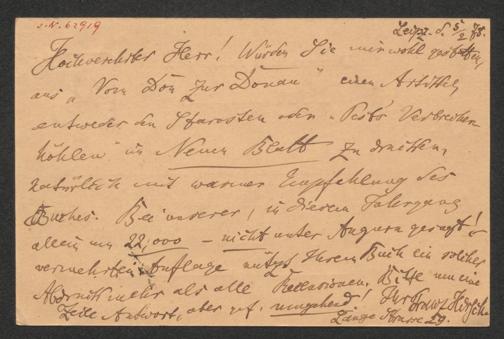 J.N. 62919
Leipz. d. 5/2 78.
Hochverehrter Herr! Würden Sie mir wohl gestatten,
aus „Vom Don zur Donau" einen Artikel,
entweder den Starosten oder „Pesto Verbrecher-
höhlen" im Neuen Blatt zu drucken,
natürlich mit warmer Empfehlung des
Buches. Bei unserer, in diesem Jahrgang
allein um 22,000 – nicht unter Augurn gesagt! –
vermehrten Auflage nützt Ihrem Buch ein solcher
Abdruck mehr als alle Recensionen. Bitte um eine
Zeile Antwort, aber gef. umgehend! Ihr Franz Hirsch
Lange Strasse 29.